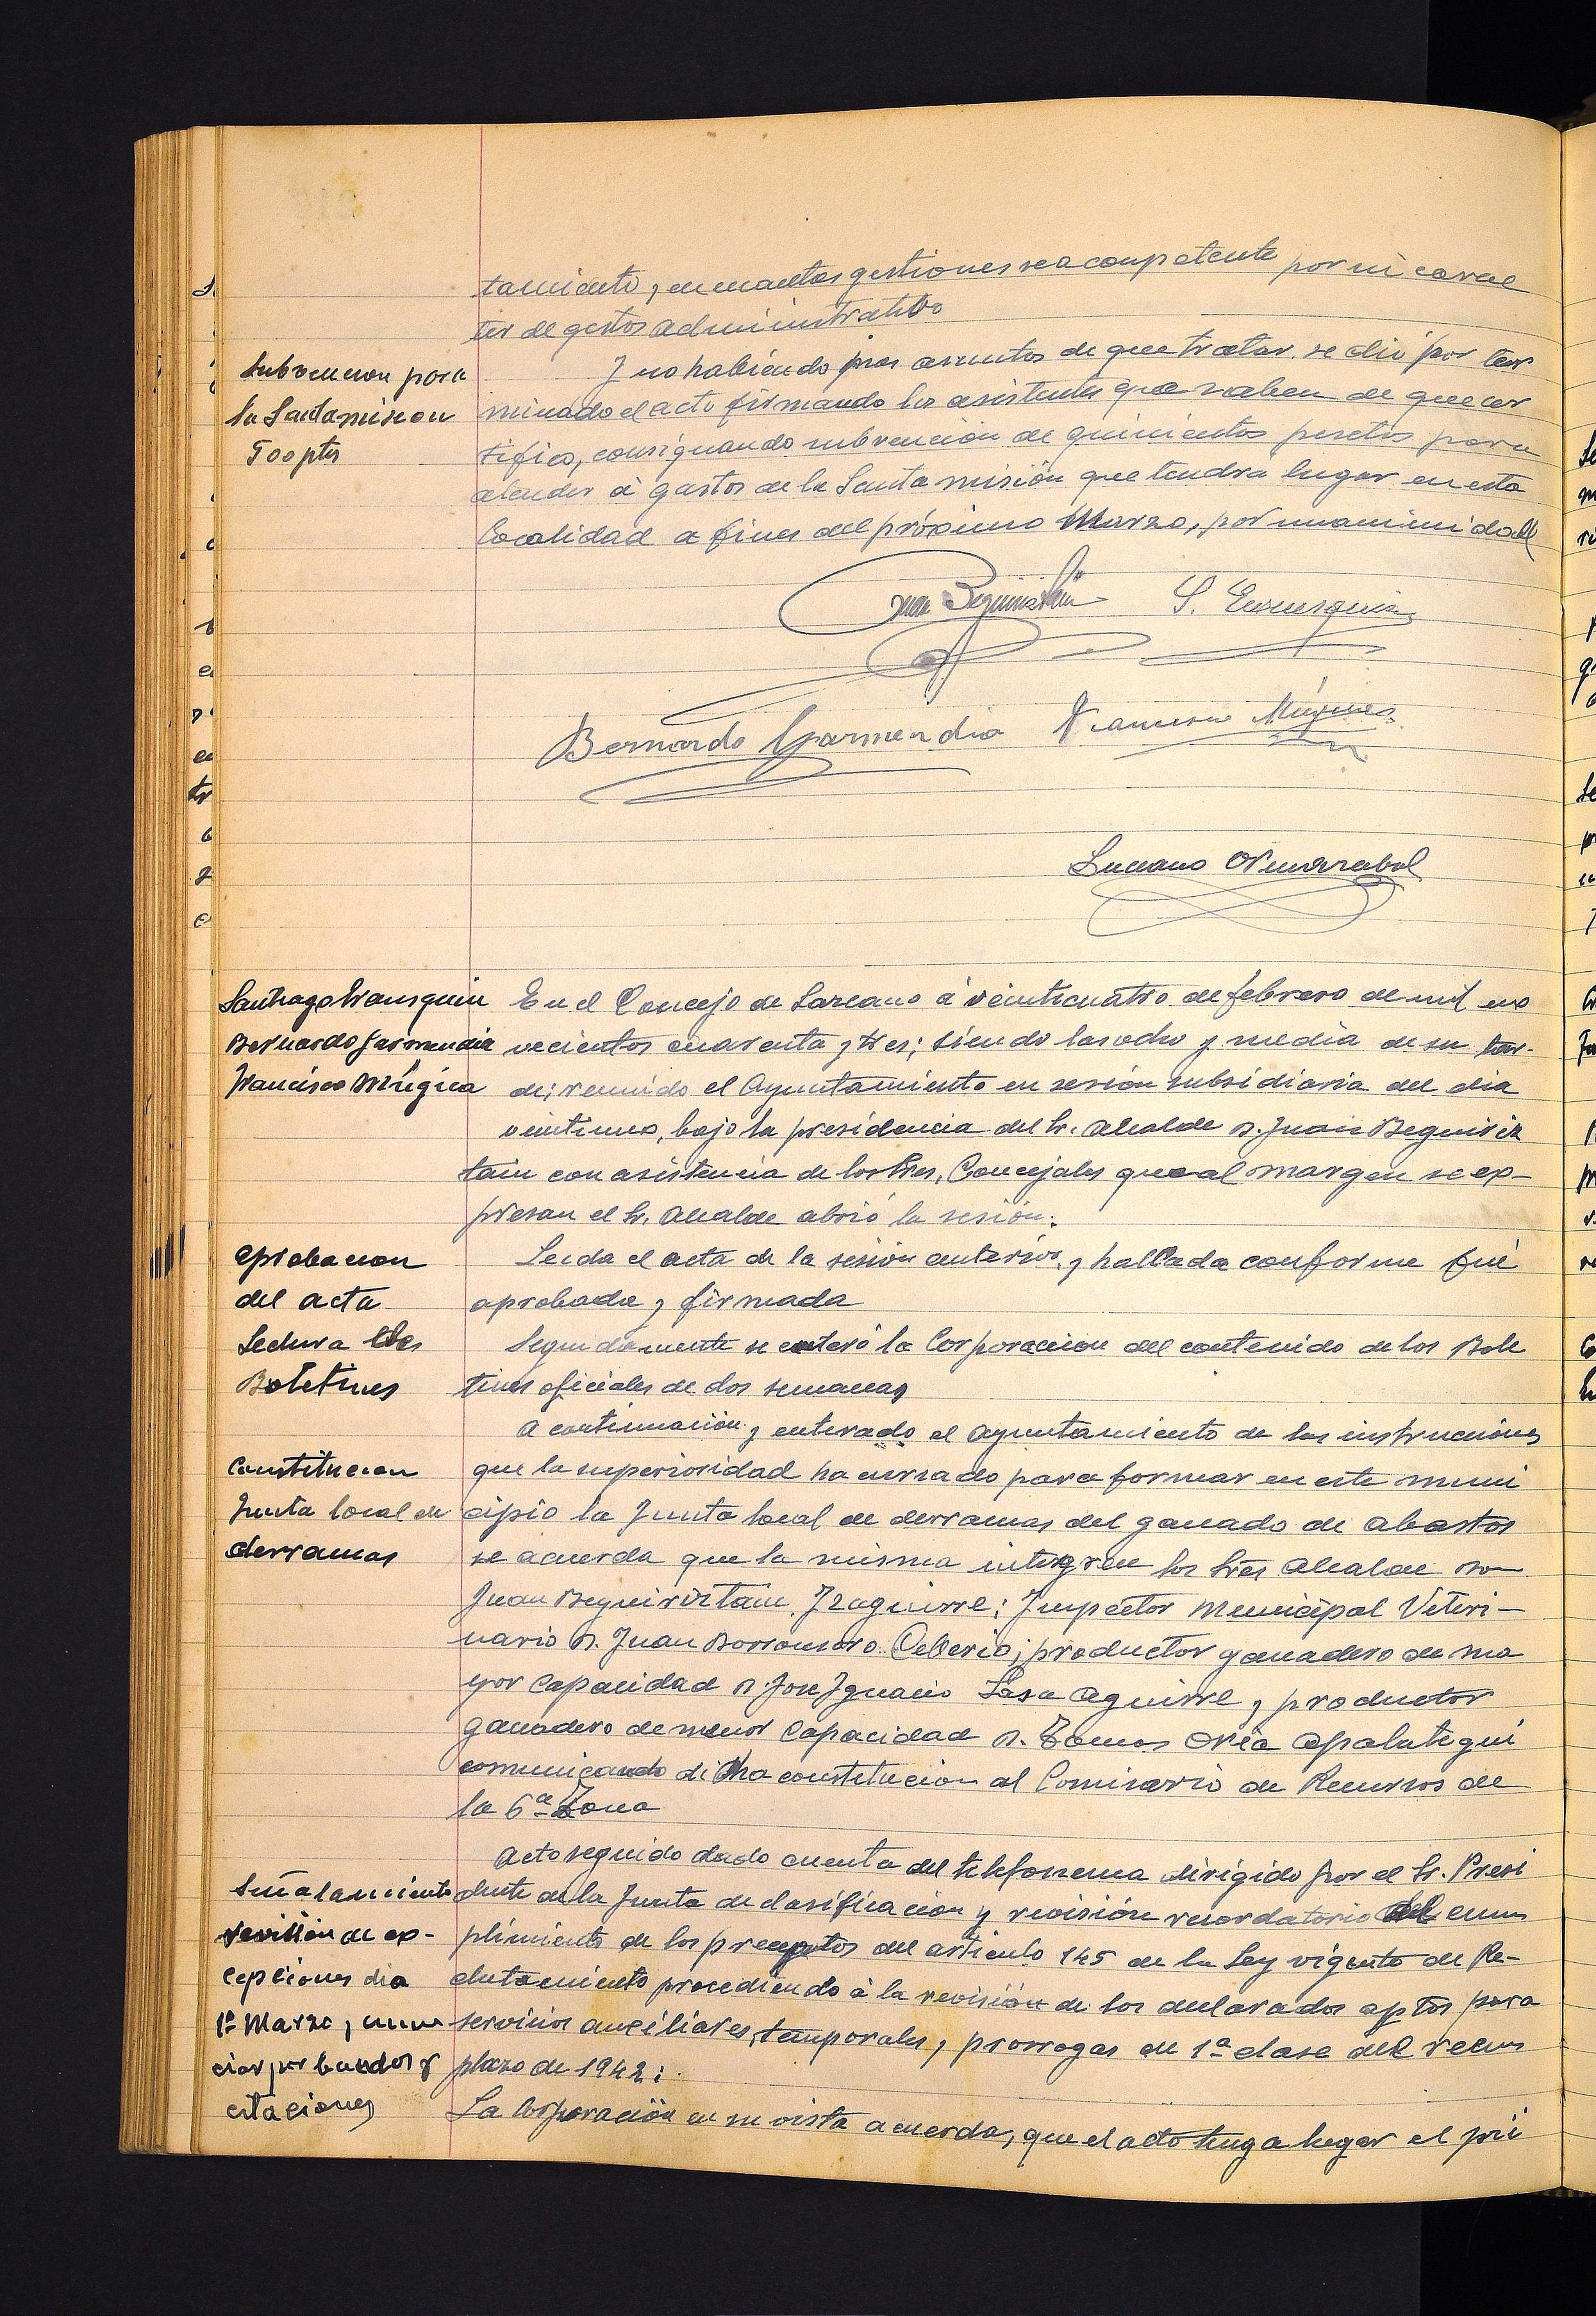 tamiento, en cuantas gestiones sea competente por su carac
ter de gestos administrativo
Subvencion para
la Santa mision
500 pts
Y no habiendo mas asuntos de que tratar se dió por ter
minado el acto firmando los asistentes que saben de que cer
tifico, consignando subvención de quinientas pesetas para
atender á gastos de la Santa misión que tendra lugar en esta
localidad a fines del próximo Marzo, por unanimidad
Juan Beguiristain S. Eransquin
Bernardo Garmendia Francisco Múgica
Luciano
Santiago Eransquin
Bernardo Garmendia
Francisco Múgica
En el Concejo de Lazcano á veinticuatro de febrero de mil no
vecientos cuarenta y tres; siendo las ocho y media de su tar-
de; reunido el Ayuntamiento en sesión subsidiaria del dia
veintiuno, bajo la presidencia del Sr. Alcalde D. Juan Beguiris
tain con asistencia de los Sres. Concejales que al margen se ex-
presan el Sr. Alcalde abrió la sesión.
Aprobacion
del acta
Leida el acta de la sesión anterior, y hallada conforme fué
aprobada y firmada
Lectura de
Boletines
Seguidamente se enteró la Corporacion del contenido de los Bole
tines oficiales de dos semanas
Constitucion
Junta local de
derramas
A continuación y enterado el Ayuntamiento de las instrucciones
que la superioridad ha cursado para formar en este muni
cipio la Junta local de derramas del ganado de abastos
se acuerda que la misma integren los Sres Alcalde Don
Juan Beguiristain Izaguirre; Inspector Municipal Veteri-
nario D. Juan Borronsoro Ceberio; productor ganadero de ma
yor capacidad D. Jose Ignacio Lasa Aguirre y productor
ganadero de menor capacidad D. Tomas Oria Apalategui
comunicando dicha constitucion al Comisario de Recursos de
la 6ª Zona
Señalamiento
revisión de ex-
cepciones dia
1º Marzo, anun
ciar por bandos y
citaciones
Acto seguido dado cuenta del telefonema dirigido por el Sr. Presi
dente de la Junta de clasificacion y revisión recordatorio del cum
plimiento de los preceptos del articulo 145 de la Ley vigente de Re-
clutamiento procediendo á la revisión de los declarados aptos para
servicios auxiliares, temporales y prorrogas de 1ª clase del reem
plazo de 1942:
La Corporación en su vista acuerda, que el acto tenga lugar el pri